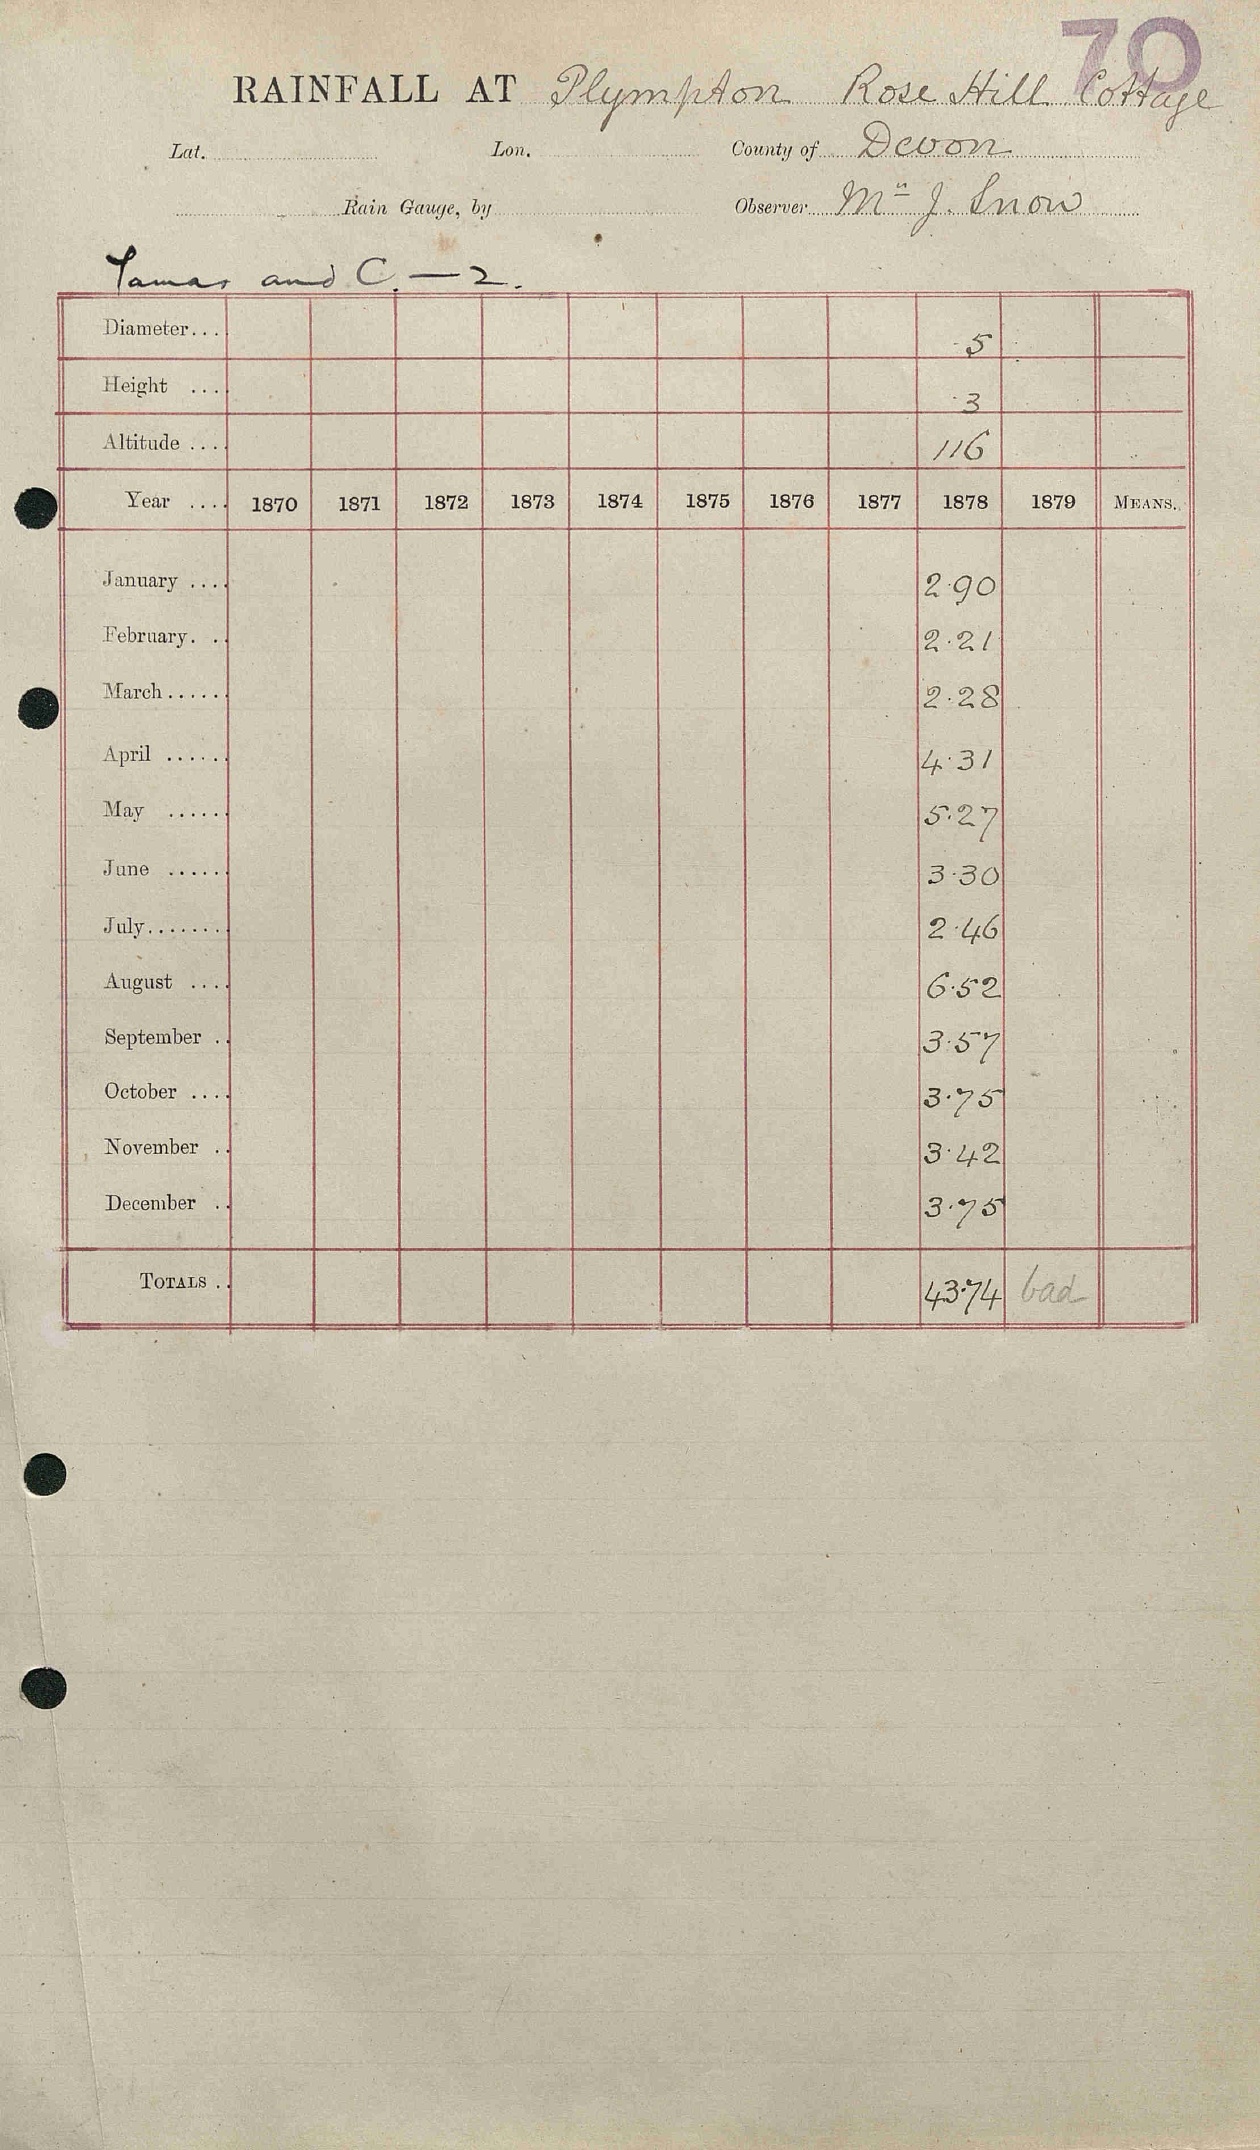 70
RAINFALL AT Plympton Rose Hill Cottage
Lat. Lon. County of Devon
Rain Gauge, by Observer Mr J. Snow
Tamar and C. — 2.
Diameter... 5
Height .... 3
Altitude .... 116
Year .... 1870 1871 1872 1873 1874 1875 1876 1877 1878 1879 MEANS.
January .... 2.90
February. .. 2.21
March...... 2.28
April ...... 4.31
May ...... 5.27
June ...... 3.30
July........ 2.46
August .... 6.52
September .. 3.57
October .... 3.75
November .. 3.42
December .. 3.75
TOTALS .. 43.74 bad